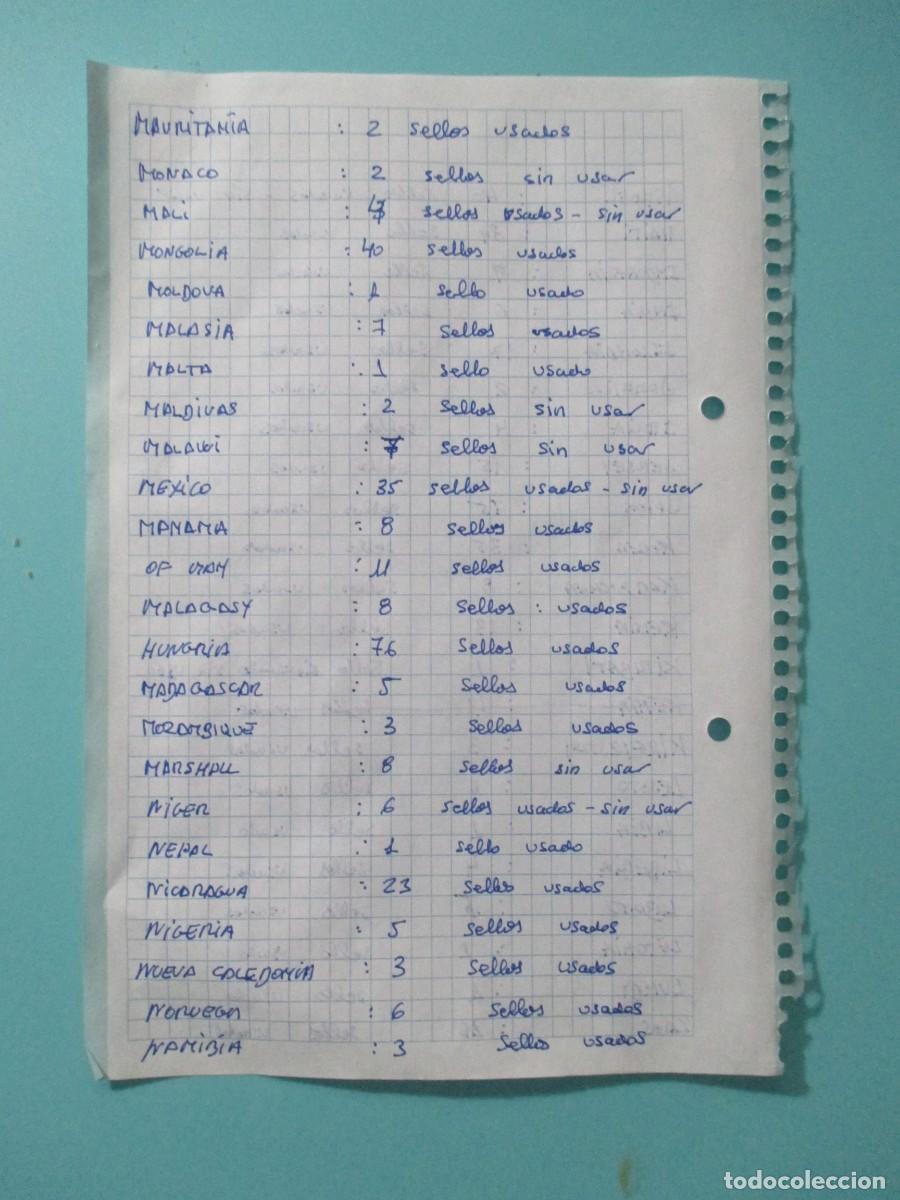 MAURITANIA : 2 sellos usados
MONACO : 2 sellos sin usar
MALI : sellos usados - sin usar
MONGOLIA : 40 sellos usados
MOLDOVA : 1 sello usado
MALASIA : 7 sellos usados
MALTA : 1 sello usado
MALDIVAS : 2 sellos sin usar
MALAWI : 7 sellos sin usar
MEXICO : 35 sellos usados - sin usar
MANAMA : 8 sellos usados
OF MAN : 11 sellos usados
MALAGASY : 8 sellos : usados
HUNGRIA : 76 sellos usados
MADAGASCAR : 5 sellos usados
MOZAMBIQUE : 3 sellos usados
MARSHALL : 8 sellos sin usar
NIGER : 6 sellos usados - sin usar
NEPAL : 1 sello usado
NICARAGUA : 23 sellos usados
NIGERIA : 5 sellos usados
NUEVA CALEDONIA : 3 sellos usados
NORUEGA : 6 sellos usados
NAMIBIA : 3 sellos usados
todocoleccion